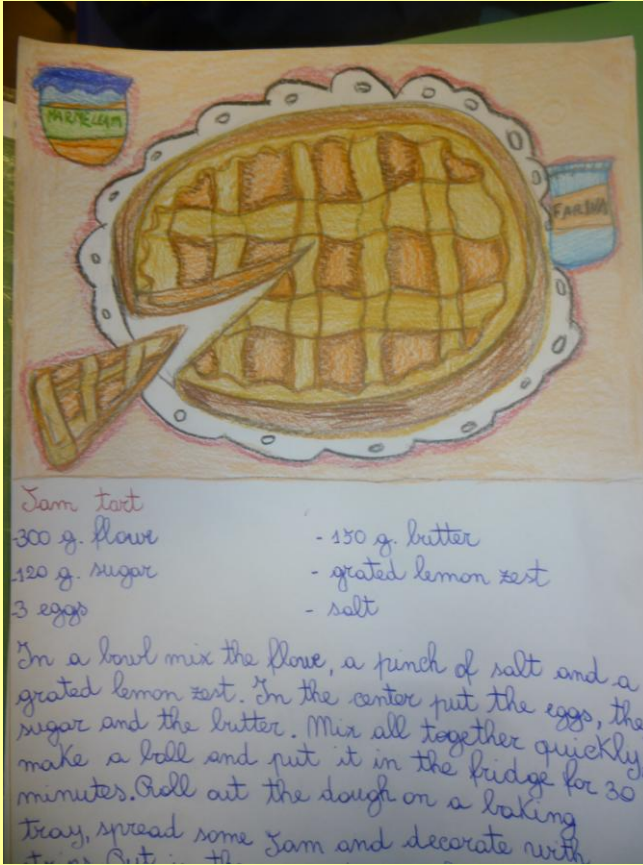 MARMELLATA
FARINA
Jam tart
-300 g. floure
- 150 g. butter
-120 g. sugar
- grated lemon zest
-3 eggs
- salt
In a bowl mix the floure, a pinch of salt and a
grated lemon zest. In the center put the eggs, the
sugar and the butter. Mix all together quickly
make a ball and put it in the fridge for 30
minutes. Roll out the dough on a baking
tray, spread some Jam and decorate with
strips. Put in the